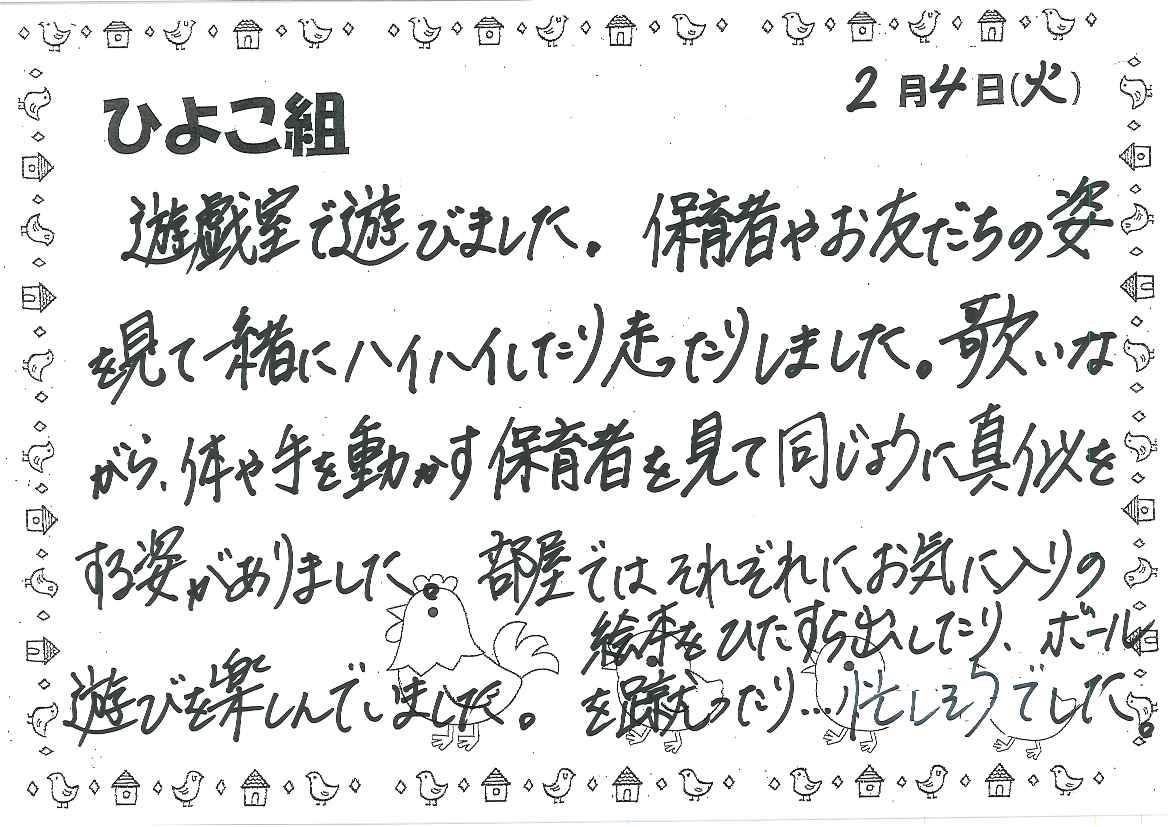 2月4日(火)
ひよこ組
遊戯室で遊びました。保育者やお友だちの姿
を見て一緒にハイハイしたり走ったりしました。歌いな
がら、体や手を動かす保育者を見て同じように真似を
する姿がありました。部屋ではそれぞれにお気に入りの
遊びを楽しんでいました。
絵本をひたすら出したり、ボール
を蹴ったり…忙しそうでした。